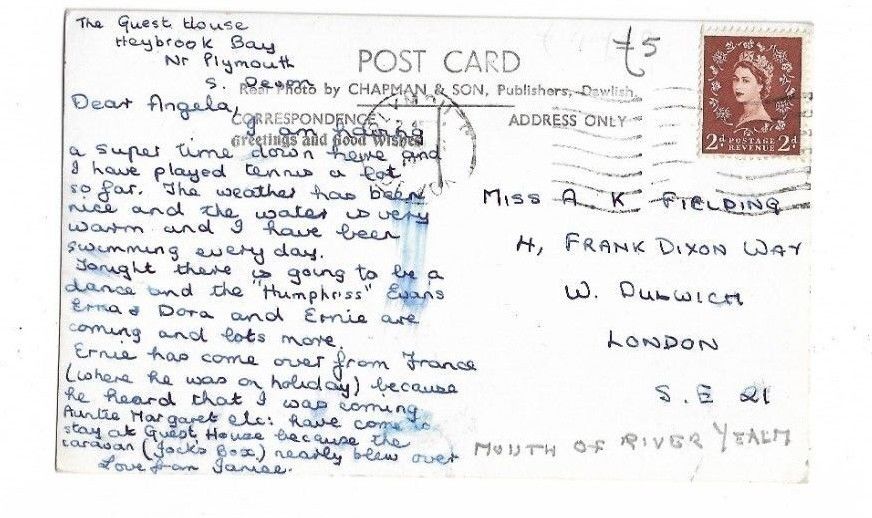 The Guest House
Heybrook Bay
Nr Plymouth
S. Devon
£5
POST CARD
Real Photo by CHAPMAN & SON, Publishers, Dawlish.
CORRESPONDENCE
ADDRESS ONLY
Greetings and Good Wishes
2d POSTAGE REVENUE 2d
Dear Angela,
I am having
a super time down here and
I have played tennis a lot
so far. The weather has been
nice and the water is very
warm and I have been
swimming every day.
Tonight there is going to be a
dance and the "Humphriss" Evans
Erna & Dora and Ernie are
coming and lots more.
Ernie has come over from France
(where he was on holiday) because
he heard that I was coming
Auntie Margaret etc: have come to
stay at Guest House because the
caravan (Jocks Box) nearly blew over
Love from Janice.
MISS A K FIELDING
4, FRANK DIXON WAY
W. DULWICH
LONDON
S.E 21
MOUTH OF RIVER YEALM